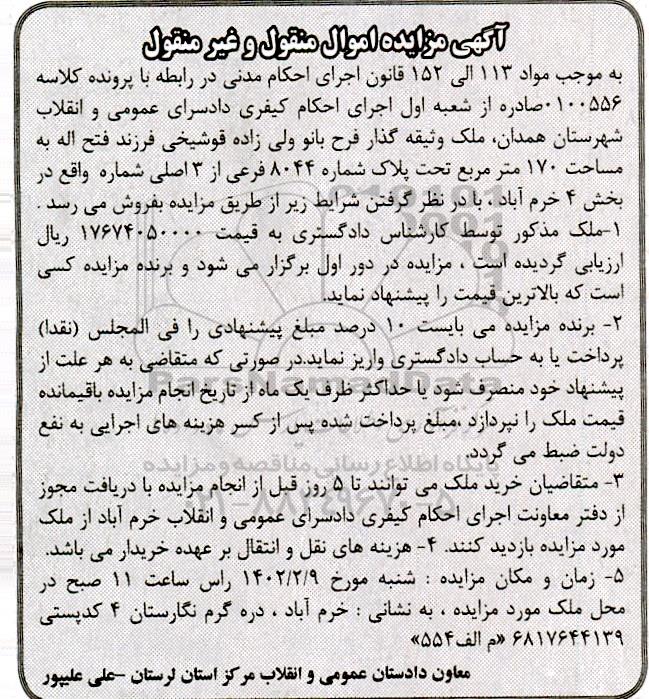 آگهی مزایده اموال منقول و غیر منقول
به موجب مواد ۱۱۳ الی ۱۵۲ قانون اجرای احکام مدنی در رابطه با پرونده کلاسه
۰۱۰۰۵۵۶صادره از شعبه اول اجرای احکام کیفری دادسرای عمومی و انقلاب
شهرستان همدان، ملک وثیقه گذار فرح بانو ولی زاده قوشیخی فرزند فتح اله به
مساحت ۱۷۰ متر مربع تحت پلاک شماره ۸۰۴۴ فرعی از ۳ اصلی شماره واقع در
بخش ۴ خرم آباد ، با در نظر گرفتن شرایط زیر از طریق مزایده بفروش می رسد .
۱-ملک مذکور توسط کارشناس دادگستری به قیمت ۱۷۶۷۴۰۵۰۰۰۰ ریال
ارزیابی گردیده است ، مزایده در دور اول برگزار می شود و برنده مزایده کسی
است که بالاترین قیمت را پیشنهاد نماید.
۲- برنده مزایده می بایست ۱۰ درصد مبلغ پیشنهادی را فی المجلس (نقدا)
پرداخت یا به حساب دادگستری واریز نماید.در صورتی که متقاضی به هر علت از
پیشنهاد خود منصرف شود یا حداکثر ظرف یک ماه از تاریخ انجام مزایده باقیمانده
قیمت ملک را نپردازد ،مبلغ پرداخت شده پس از کسر هزینه های اجرایی به نفع
دولت ضبط می گردد.
۳- متقاضیان خرید ملک می توانند تا ۵ روز قبل از انجام مزایده با دریافت مجوز
از دفتر معاونت اجرای احکام کیفری دادسرای عمومی و انقلاب خرم آباد از ملک
مورد مزایده بازدید کنند. ۴- هزینه های نقل و انتقال بر عهده خریدار می باشد.
۵- زمان و مکان مزایده : شنبه مورخ ۱۴۰۲/۲/۹ راس ساعت ۱۱ صبح در
محل ملک مورد مزایده ، به نشانی : خرم آباد ، دره گرم نگارستان ۴ کدپستی
۶۸۱۷۶۴۴۱۳۹ «م الف۵۵۴»
معاون دادستان عمومی و انقلاب مرکز استان لرستان -علی علیپور
ParsNamadData
پایگاه اطلاع رسانی مناقصه و مزایده